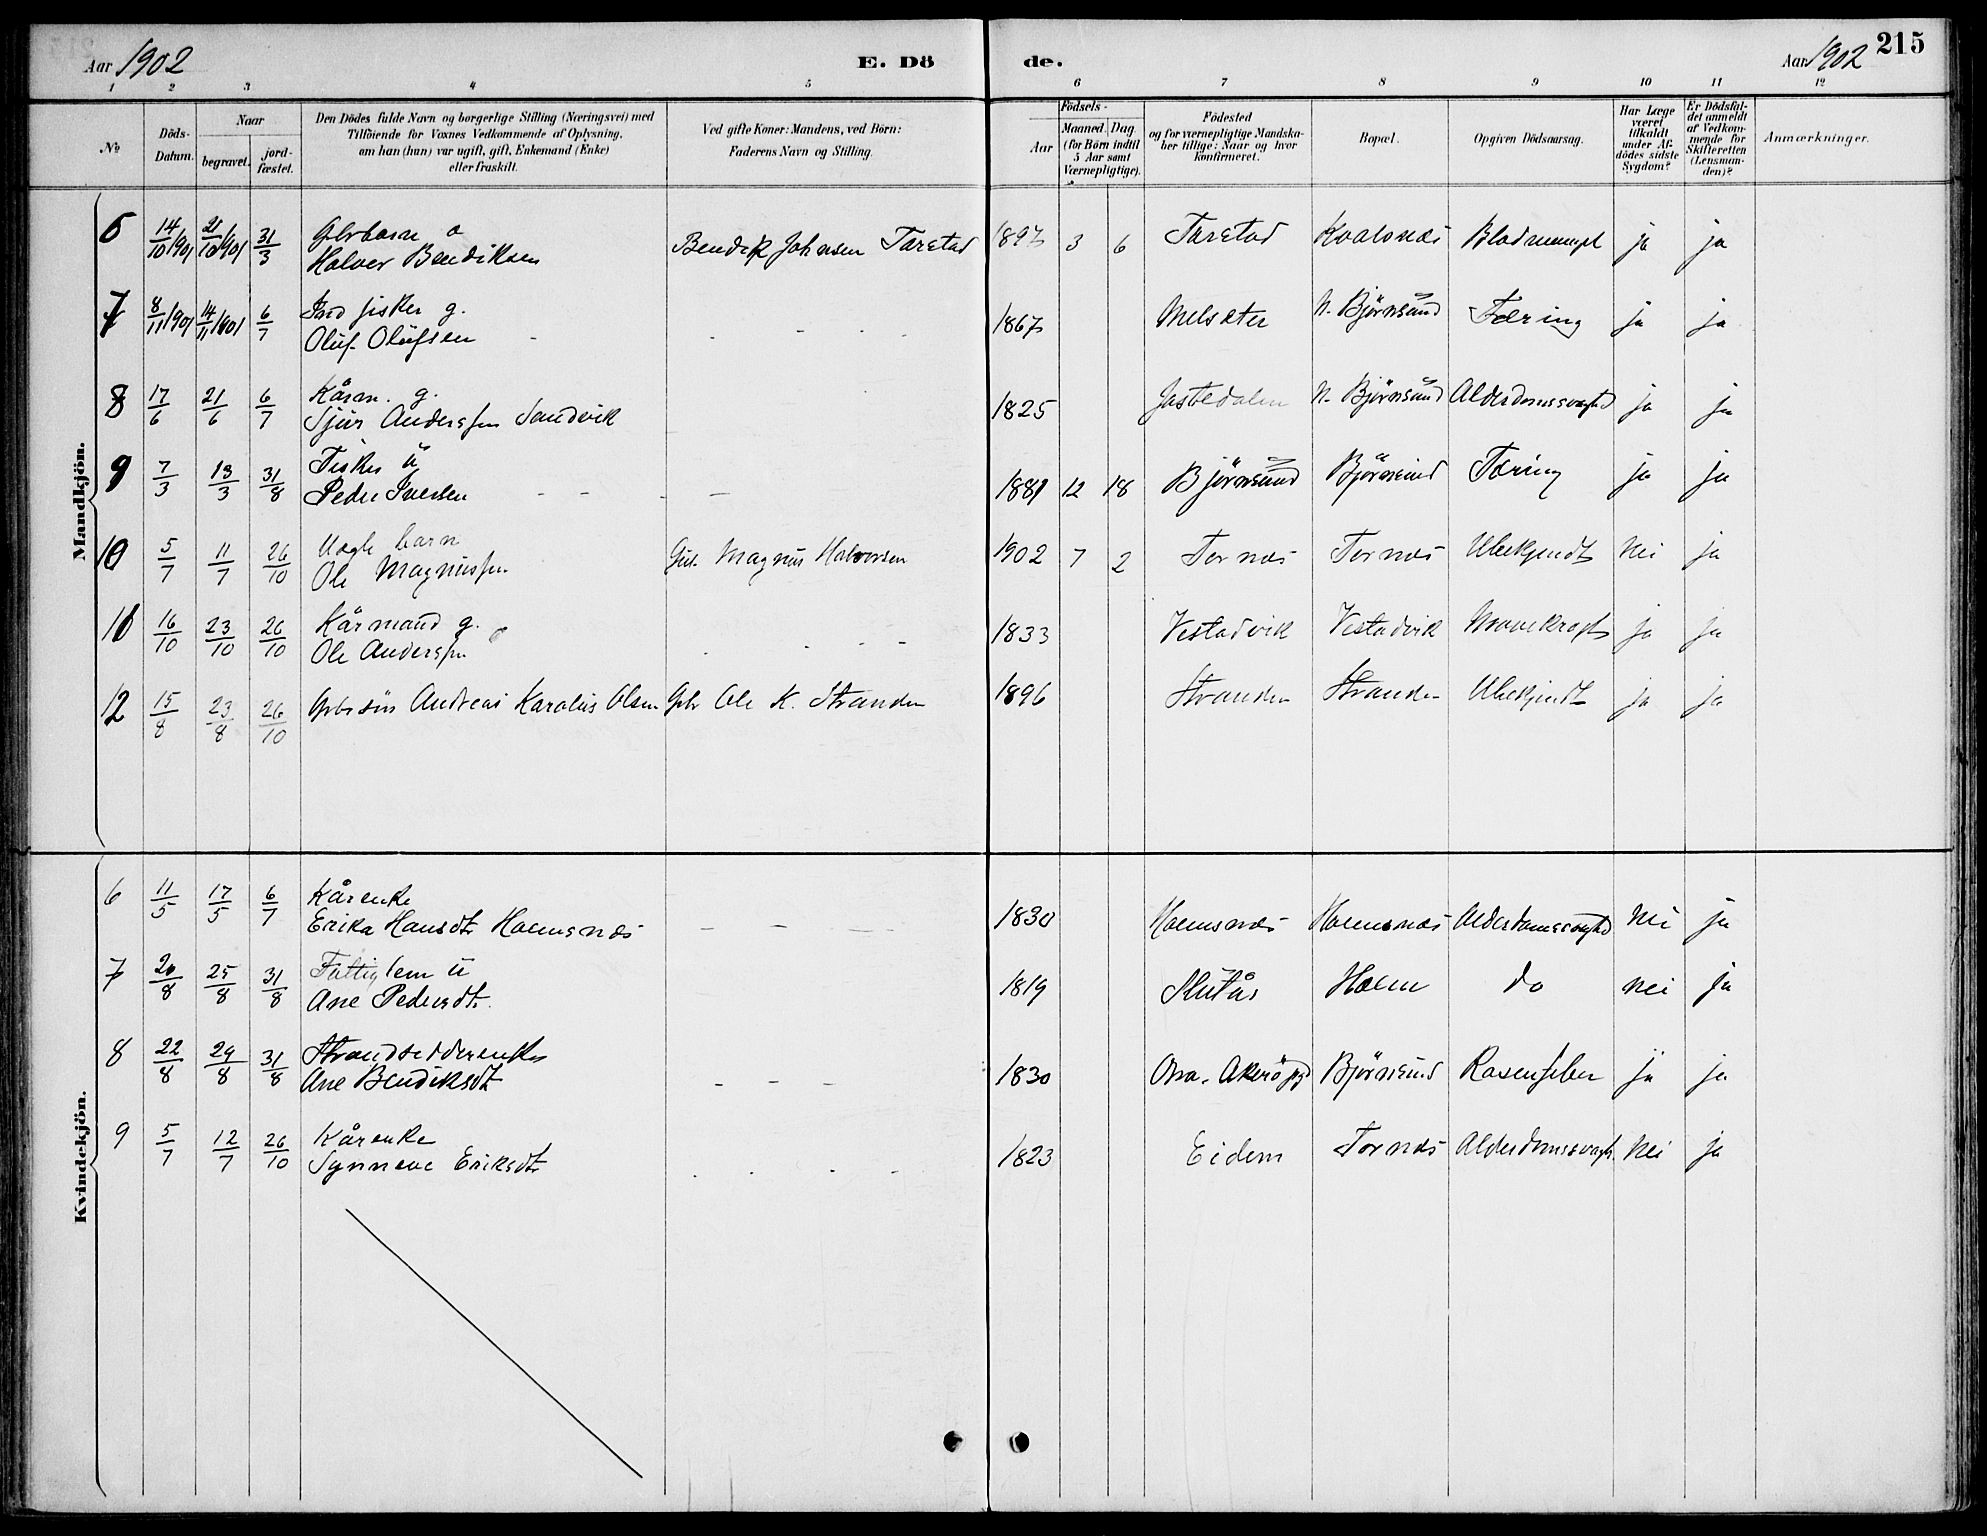 Aar 1902
E. Dö
de.
Aar 1902
215
1 2 3 4 5 6 7 8 9 10 11 12
№
Döds-Datum.
Naar
begravet.
jord-fæstet.
Den Dödes fulde Navn og borgerlige Stilling (Næringsvei) med
Tilföiende for Voxnes Vedkommende af Oplysning,
om han (hun) var ugift, gift, Enkemand (Enke)
eller fraskilt.
Ved gifte Koner: Mandens, ved Börn:
Faderens Navn og Stilling.
Födsels-
Aar
Maaned. Dag
(for Börn indtil
5 Aar samt
Værnepligtige).
Födested
og for værnepligtige Mandska-
ber tillige: Naar og hvor
konfirmeret.
Bopæl.
Opgiven Dödsaarsag.
Har Læge
været
tilkaldt
under Af-
dödes sidste
Sygdom?
Er Dödsfal-
det anmeldt
af Vedkom-
mende for
Skifteretten
(Lensman-
den)?
Anmærkninger.
Mandkjön.
6 14/10/901 21/10/901 31/3 Halvor Bendiksen Bendik Johnsen Tarstad 1897 3 6 Tarstad Kvalsnæs ja ja
7 8/11/901 14/11/901 6/7 Ind fisker g.
Oluf Olufsen 1867 Melsæter N. Björnsund Tæring ja ja
8 17/6 21/6 6/7 Kårm. g.
Sjur Anderssen Sandvik 1825 Jostedalen N. Björnsund Alderdomssvaghed ja ja
9 7/3 13/3 31/8 Fisker u
Peder Iversen 1881 12 18 Björnsund Björnsund Tæring ja ja
10 5/7 11/7 26/10 Uægte barn
Ole Magnussen Magnus Halvorsen 1902 7 2 Tornæs Tornæs Ubekjendt Nei ja
11 16/10 23/10 26/10 Kårmand g.
Ole Anderssen 1833 Vestadvik Vestadvik ja ja
12 15/8 23/8 26/10 Gbrsön Andreas Karolius Olsen Gbr Ole K. Stranden 1896 Stranden Stranden Ubekjendt ja ja
Kvindekjön.
6 11/5 17/5 6/7 Kårenke
Erika Hansdtr Holmsnæs 1830 Holmsnæs Holmsnæs Alderdomssvaghed Nei ja
7 20/8 25/8 31/8 Fattiglem u
Ane Pedersdtr. 1819 Slutås Holm do nei ja
8 22/8 29/8 31/8 Strandsidderenke
Ane Bendiksdtr 1830 Ona. Akerö pgd Björnsund Rosenfeber ja ja
9 5/7 12/7 26/10 Kårenke
Synneve Eriksdtr 1823 Eidem Tornæs Alderdomssvagh. Nei ja